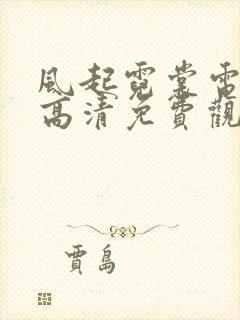 風起霓裳電
高清免費觀
賈島